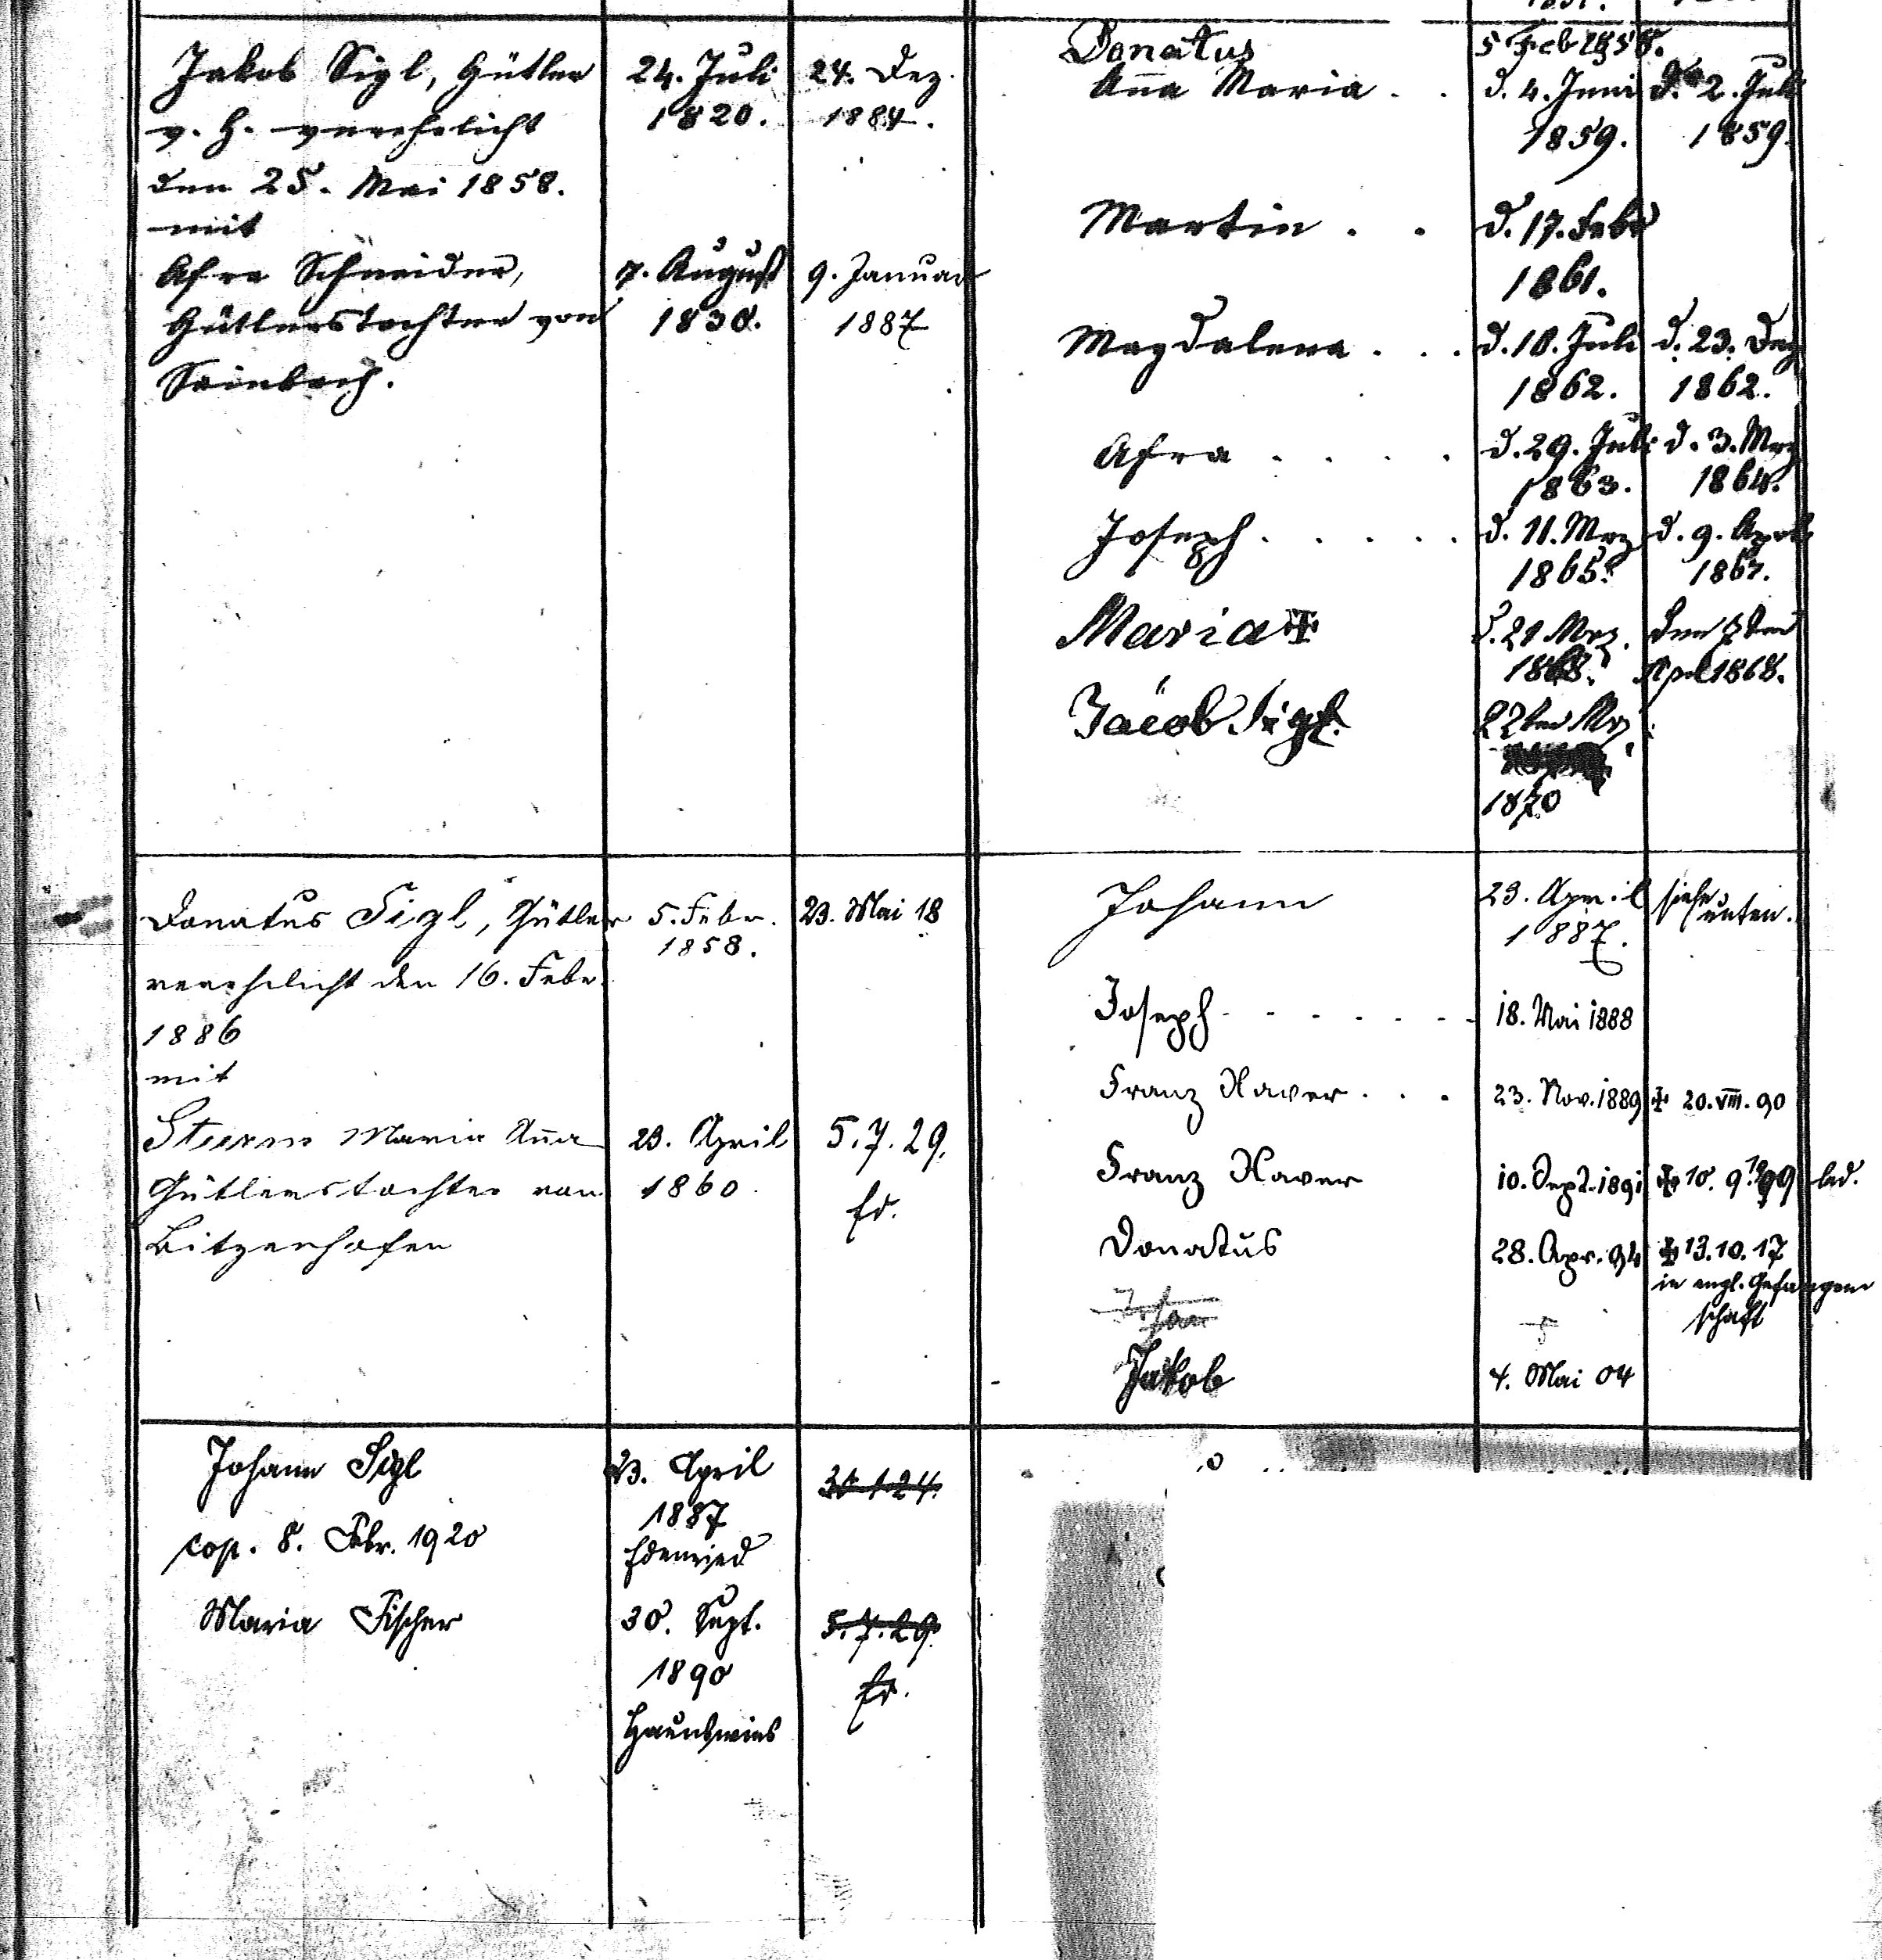 Jakob Sigl, Gütler
v. h. verehelicht
den 25. Mai 1858.
mit
Afra Schneider,
Gütlerstochter von
Sainbach.
24. Juli
1820.
24. Dez.
1884.
7. August
1830.
9. Januar
1887
Donatus
5 Feb 1858.
Aña Maria . .
d. 4. Juni
1859.
d. 2. Juli
1859.
Martin . .
d. 17. Febr
1861.
Magdalena . . .
d. 10. Juli
1862.
d. 23. Dez
1862.
Afra . . . .
d. 29. Juli
1863.
d. 3. Mrz
1864.
Joseph . . . . .
d. 11. Mrz
1865.
d. 9. April
1867.
Maria ✠
d. 21 Mrz.
1868.
den 7ten
April 1868.
Jacob Sigl.
22ten Mrz
1870
Donatus Sigl, Gütler
verehelicht den 16. Febr.
1886
mit
Sturm Maria Aña
Gütlerstochter von
Bitzenhofen
5. Febr.
1858.
23. Mai 18
23. April
1860
5.7.29.
Ed.
Johann
23. April
1887.
siehe
unten.
Joseph - - - - - - -
18. Mai 1888
Franz Xaver . . .
23. Nov. 1889
✠ 20. VIII. 90
Franz Xaver
10. Sept. 1891
✠ 10. 9. led.
Donatus
28. Apr. 94
✠ 13.10.17
in engl. Gefangen
schaft
Jakob
4. Mai 04
Johann Sigl
cop. 8. Febr. 1920
Maria Fischer
23. April
1887
Edenried
30. Sept.
1890
5.7.29.
Ed.